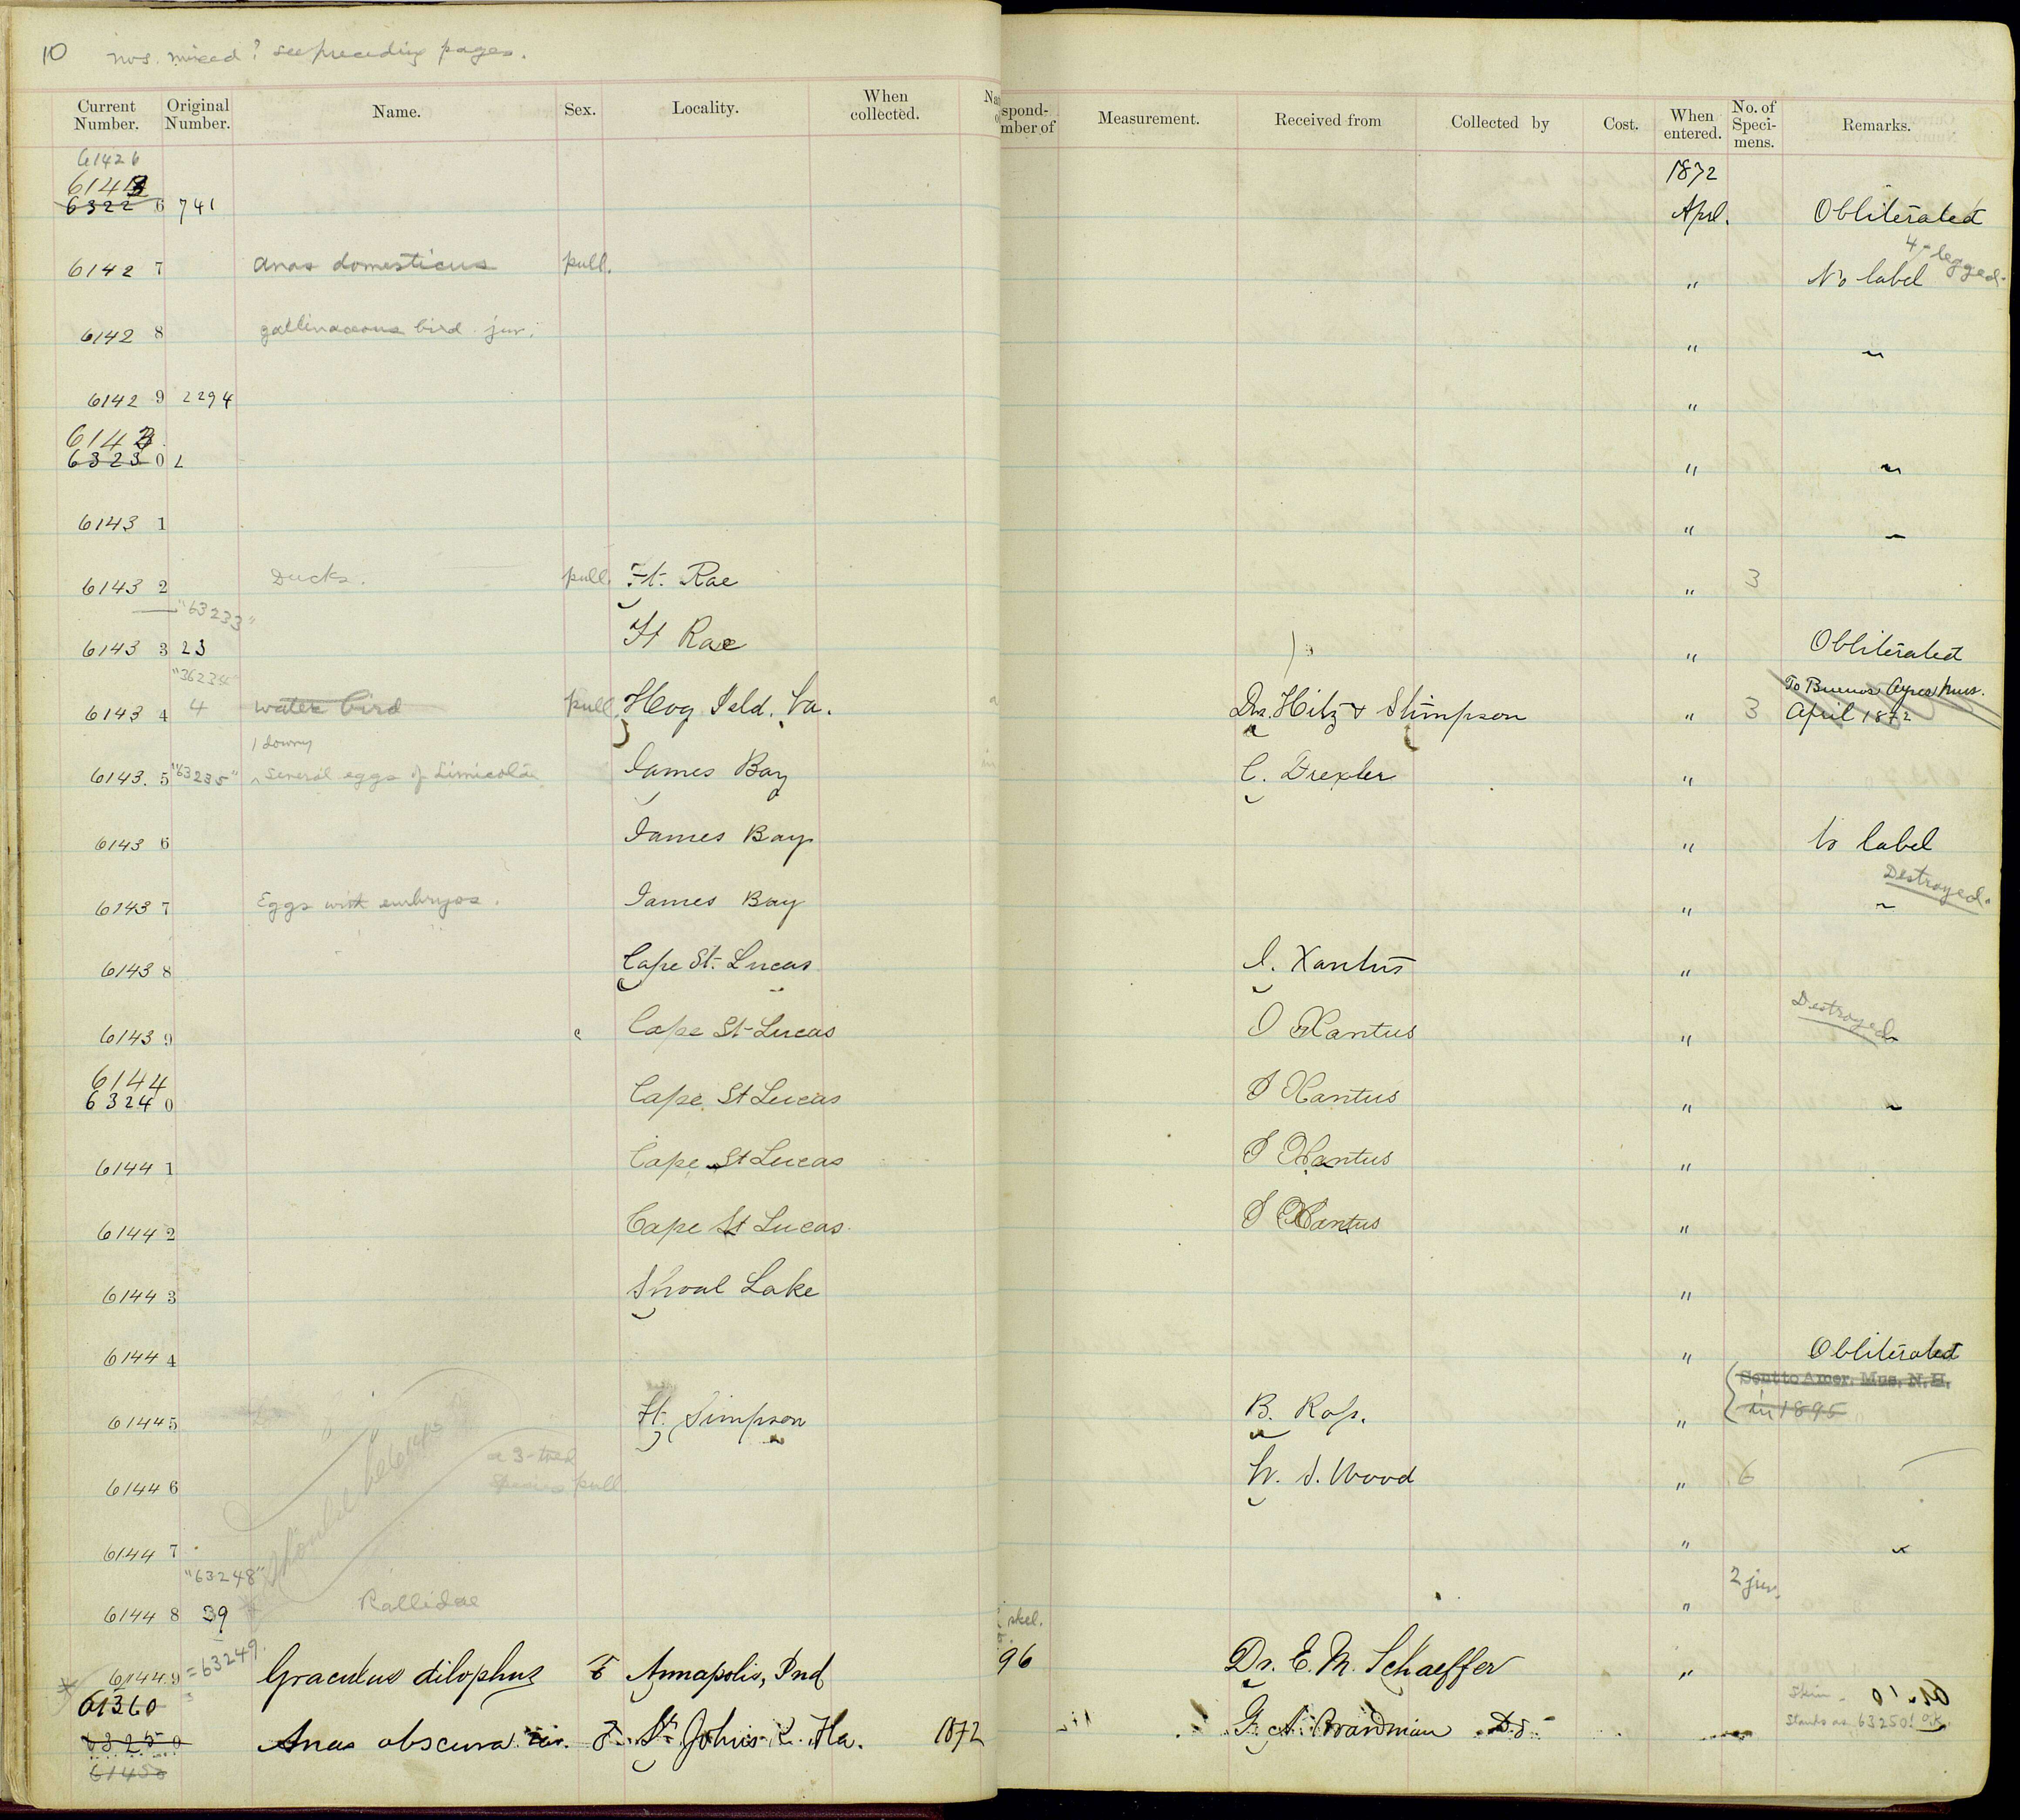 10 nos. mixed? see preceding pages.
Current Number. Original Number. Name. Sex. Locality. When collected. spond- mber of Measurement. Received from Collected by Cost. When entered. No. of Speci- mens. Remarks.
61426
6141 1872
6322 6 741 Apl. Obliterated
4-legged.
6142 7 Anas domesticus pull. " No label
6142 8 gallinaceous bird juv. " "
6142 9 2294 "
6143
6323 0 2 " "
6143 1 " "
6143 2 Ducks. pull. Ft. Rae " 3
"63233"
6143 3 23 Ft Rae " Obliterated
"36234" To Buenos Ayres Mus.
6143 4 4 water bird pull. Hog Isld. Va. Drs. Hitz & Stimpson " 3 April 1872
1 downy
6143. 5 "63235" Several eggs of Limicolae James Bay C. Drexler "
6143 6 James Bay " No label
Destroyed.
6143 7 Eggs with embryos. James Bay " "
6143 8 Cape St. Lucas J. Xantus "
Destroyed
6143 9 Cape St Lucas J Xantus " "
6144
6324 0 Cape St Lucas J Xantus " "
6144 1 Cape St Lucas J Xantus "
6144 2 Cape St Lucas. J Xantus "
6144 3 Shoal Lake "
6144 4 " Obliterated
Sent to Amer. Mus. N.H.
6144 5 Ft. Simpson B. Ross. " in 1895
a 3-toed
6144 6 species pull. W. S. Wood " 6
6144 7 " "
"63248" should be 2 juv.
6144 8 39 Rallidae "
skel.
6144 9 = 63249. Graculus dilophus Annapolis, Ind 96 Dr. E. M. Schaeffer "
61360 Skin.
6325 0 Anas obscura St Johns R. Fla. 1872 G. A. Boardman Stands as 63250! O.K.
61450